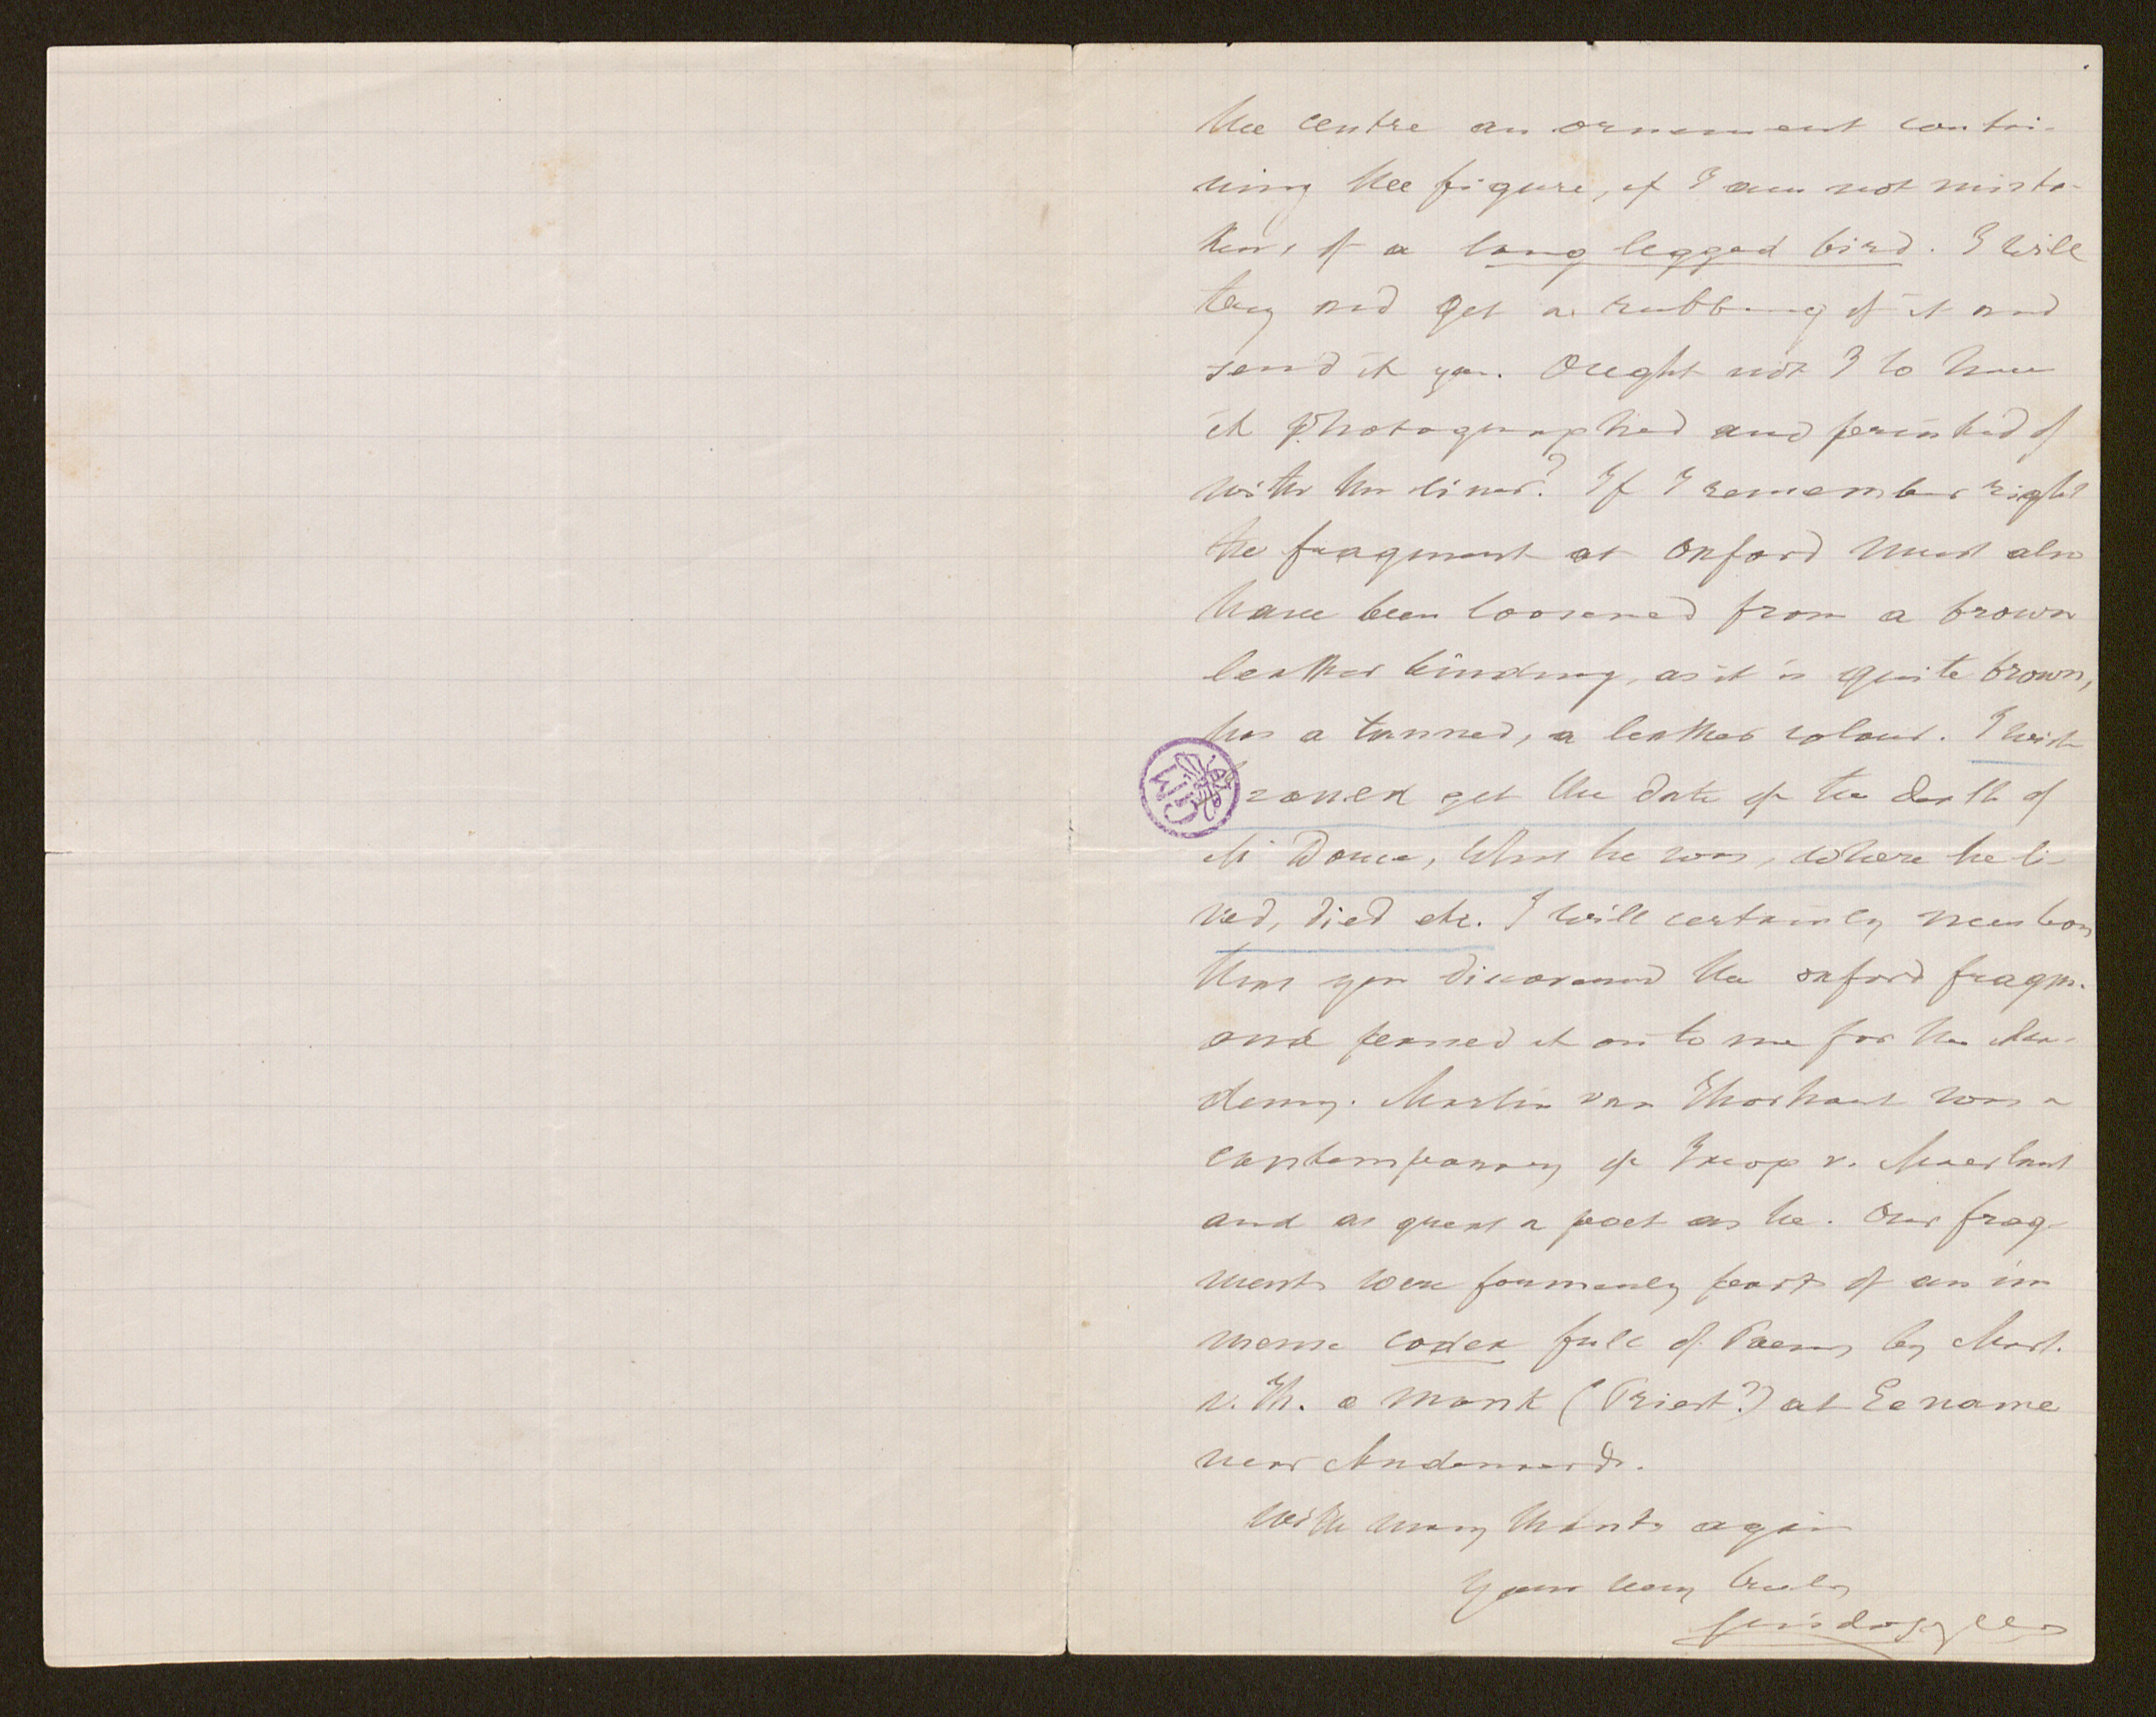 the centre an ornement contai-
ning the figure, if I am not mista-
ken, of a long legged bird. I will
try and get a rubbing of it and
send it you. Ought not I to have
it photographed and printed of
with the lines? If I remember right
the fragment at Oxford must also
have been loosened from a brown
leather binding, as it is quite brown,
has a tanned, a leather colour. I wish
I could get the date of the death of
Mr Douce, Who he was, where he li-
ved, died etc. I will certainly mention
that you discovered the oxford fragm.
and passed it on to me for the Aca-
demy. Martin van Thorhout was a
contemporary of Jacop v. Maerlant
and as great a poet as he. Our frag-
ments were formerly parts of an im
mense codex full of Poems by Mart.
v. Th. a monk (Priest?) at Eename
near Audenaerde.
With many thanks again
Yours very truly